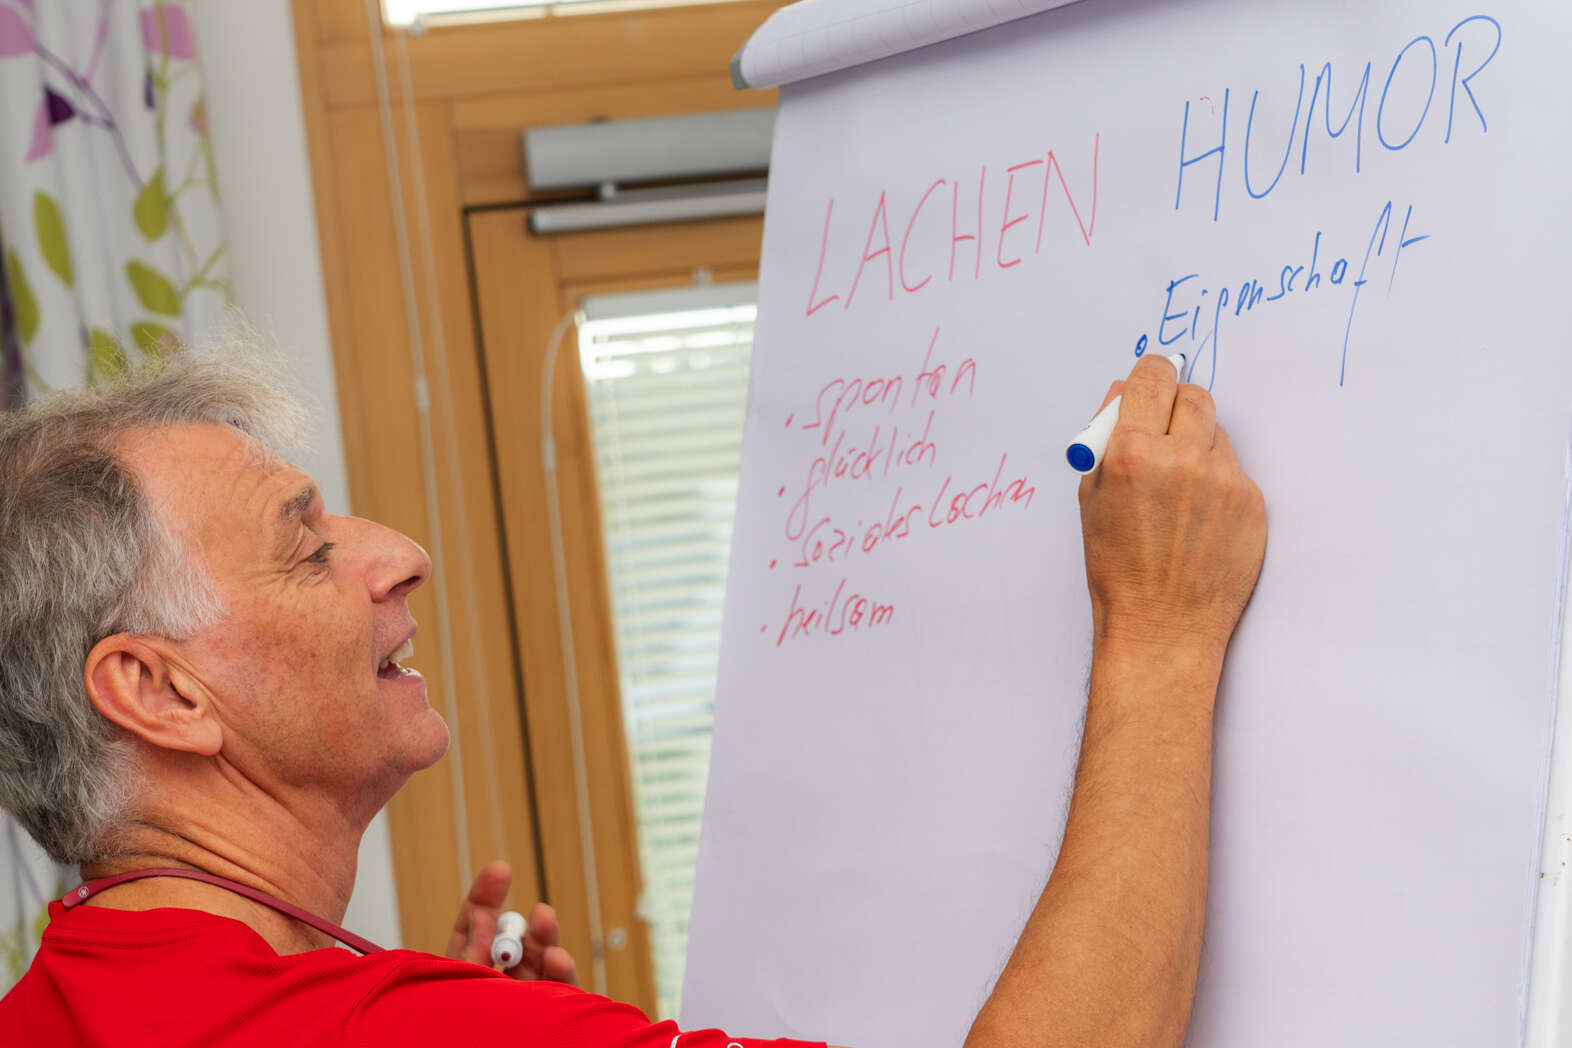 LACHEN HUMOR
• spontan
• glücklich
• soziales Lachen
• heilsam
• Eigenschaft